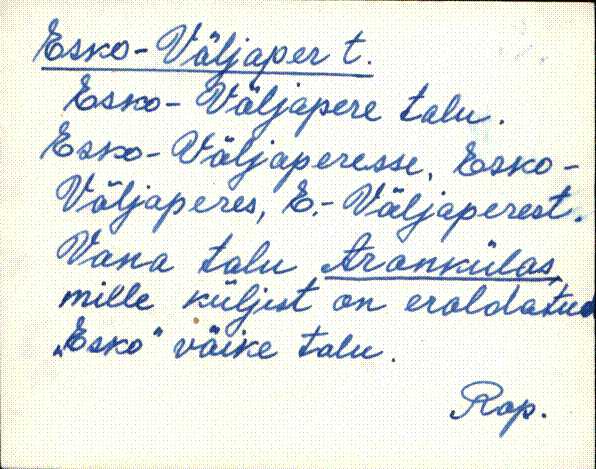 Esko-Väljaper t.
Esko-Väljapere talu.
Esko-Väljaperesse, Esko-
Väljaperes, E.-Väljaperest.
Vana talu Arankülas,
mille küljist on eraldatud
„Esko" väike talu.
Rap.